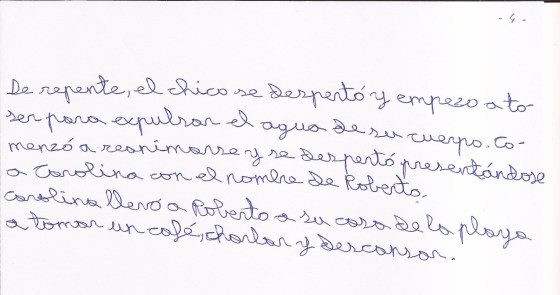 - 4 -
De repente, el chico se despertó y empezo a to-
ser para expulsar el agua de su cuerpo. Co-
menzó a reanimarse y se despertó presentándose
a Carolina con el nombre de Roberto.
Carolina llevó a Roberto a su casa de la playa
a tomar un café, charlar y descansar.